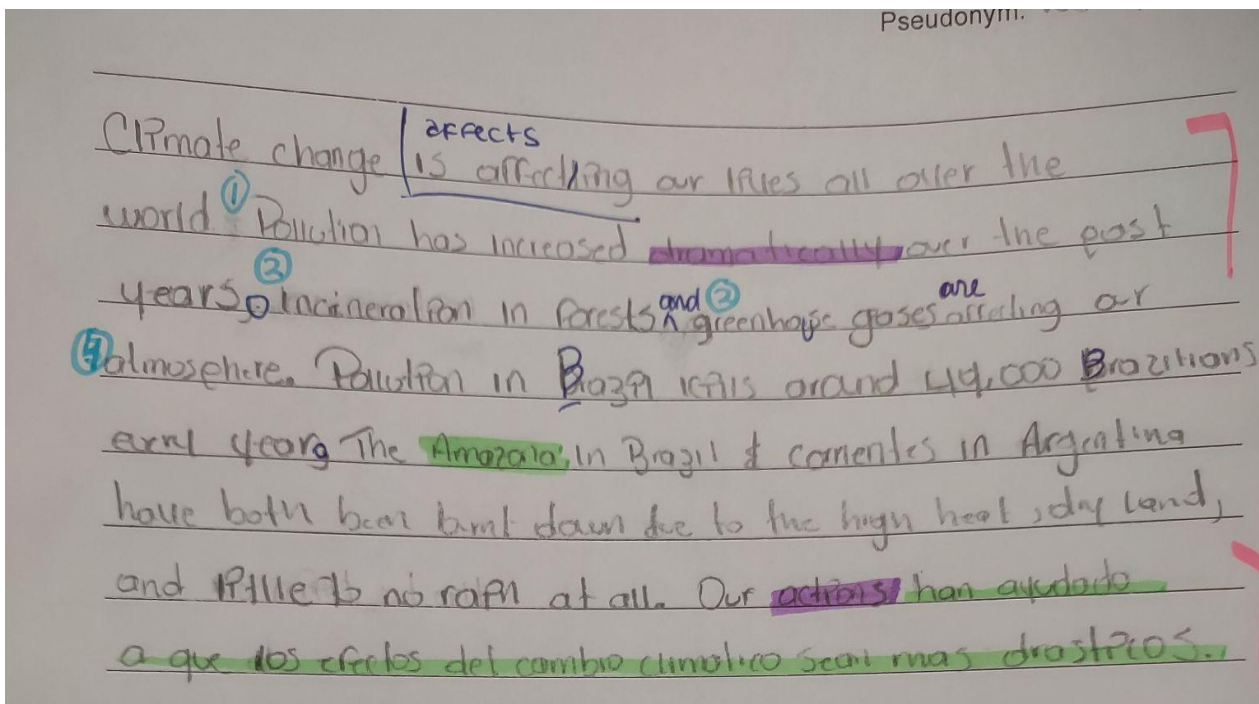 Pseudonym:
affects
Climate change is affecting our lives all over the
1
world Pollution has increased dramatically over the past
2 and 2 are
years. Incineration in forests greenhouse gases affecting our
4 atmosphere. Pollution in Brazil kills around 49,000 Brazilians
every year. The Amazonia, in Brazil & corrientes in Argentina
have both been burnt down due to the high heat, dry land,
and little to no rain at all. Our actions han ayudado
a que los efectos del cambio climatico sean mas drasticos.